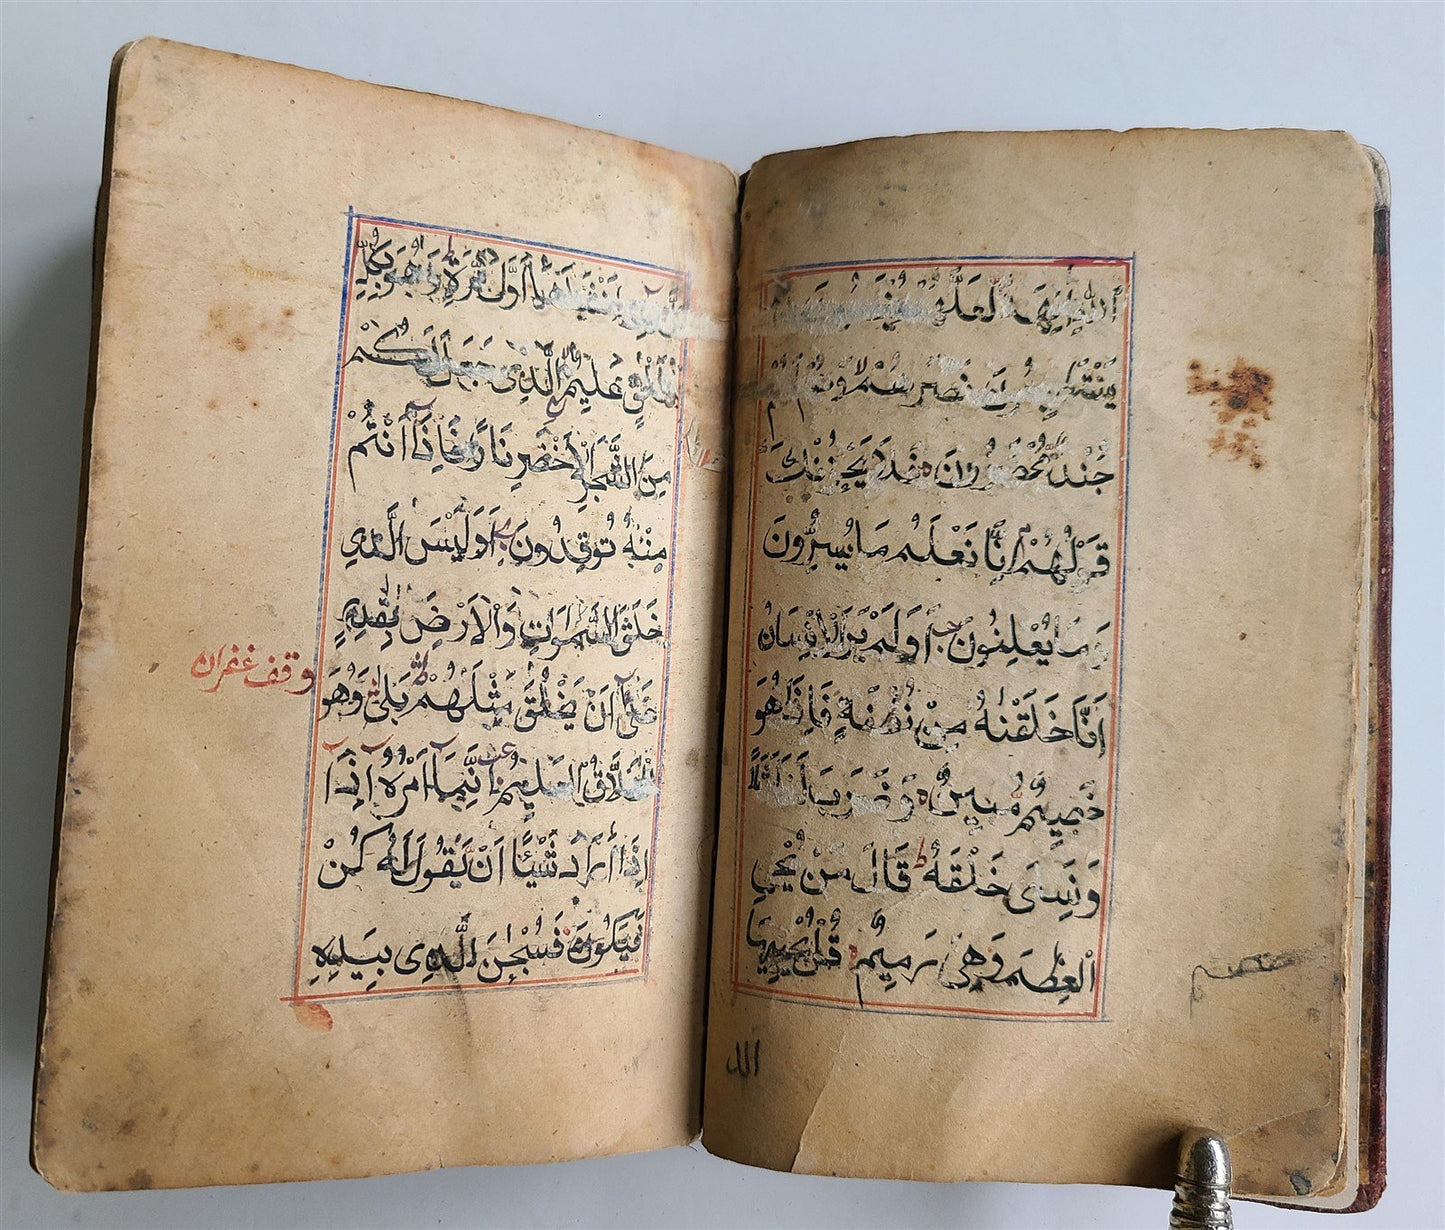 اٰلِهَةً لَعَلَّهُمْ يُنْصَرُونَ
نَصْرَهُمْ وَهُمْ لَهُمْ
جُنْدٌ مُحْضَرُونَ فَلَا يَحْزُنْكَ
قَوْلُهُمْ اِنَّا نَعْلَمُ مَا يُسِرُّونَ
وَمَا يُعْلِنُونَ ج اَوَلَمْ يَرَ الْاِنْسَانُ
اَنَّا خَلَقْنٰهُ مِنْ نُطْفَةٍ فَاِذَا هُوَ
خَصِيمٌ مُبِينٌ وَضَرَبَ لَنَا مَثَلًا
وَنَسِىَ خَلْقَهُ ط قَالَ مَنْ يُحْيِ
الْعِظٰمَ وَهِىَ رَمِيمٌ قُلْ يُحْيِيهَا
الذ
الَّذِى اَنْشَاَهَا اَوَّلَ مَرَّةٍ ط وَهُوَ بِكُلِّ
خَلْقٍ عَلِيمٌ الَّذِى جَعَلَ لَكُمْ
مِنَ الشَّجَرِ الْاَخْضَرِ نَارًا فَاِذَا اَنْتُمْ
مِنْهُ تُوقِدُونَ اَوَلَيْسَ الَّذِى
خَلَقَ السَّمٰوَاتِ وَالْاَرْضَ بِقٰدِرٍ
وقف غفران
عَلٰى اَنْ يَخْلُقَ مِثْلَهُمْ ط بَلٰى وَهُوَ
الْخَلَّاقُ الْعَلِيمُ اِنَّمَا اَمْرُهُ اِذَا
اِذَا اَرَادَ شَيْئًا اَنْ يَقُولَ لَهُ كُنْ
فَيَكُونُ فَسُبْحٰنَ الَّذِى بِيَدِهِ